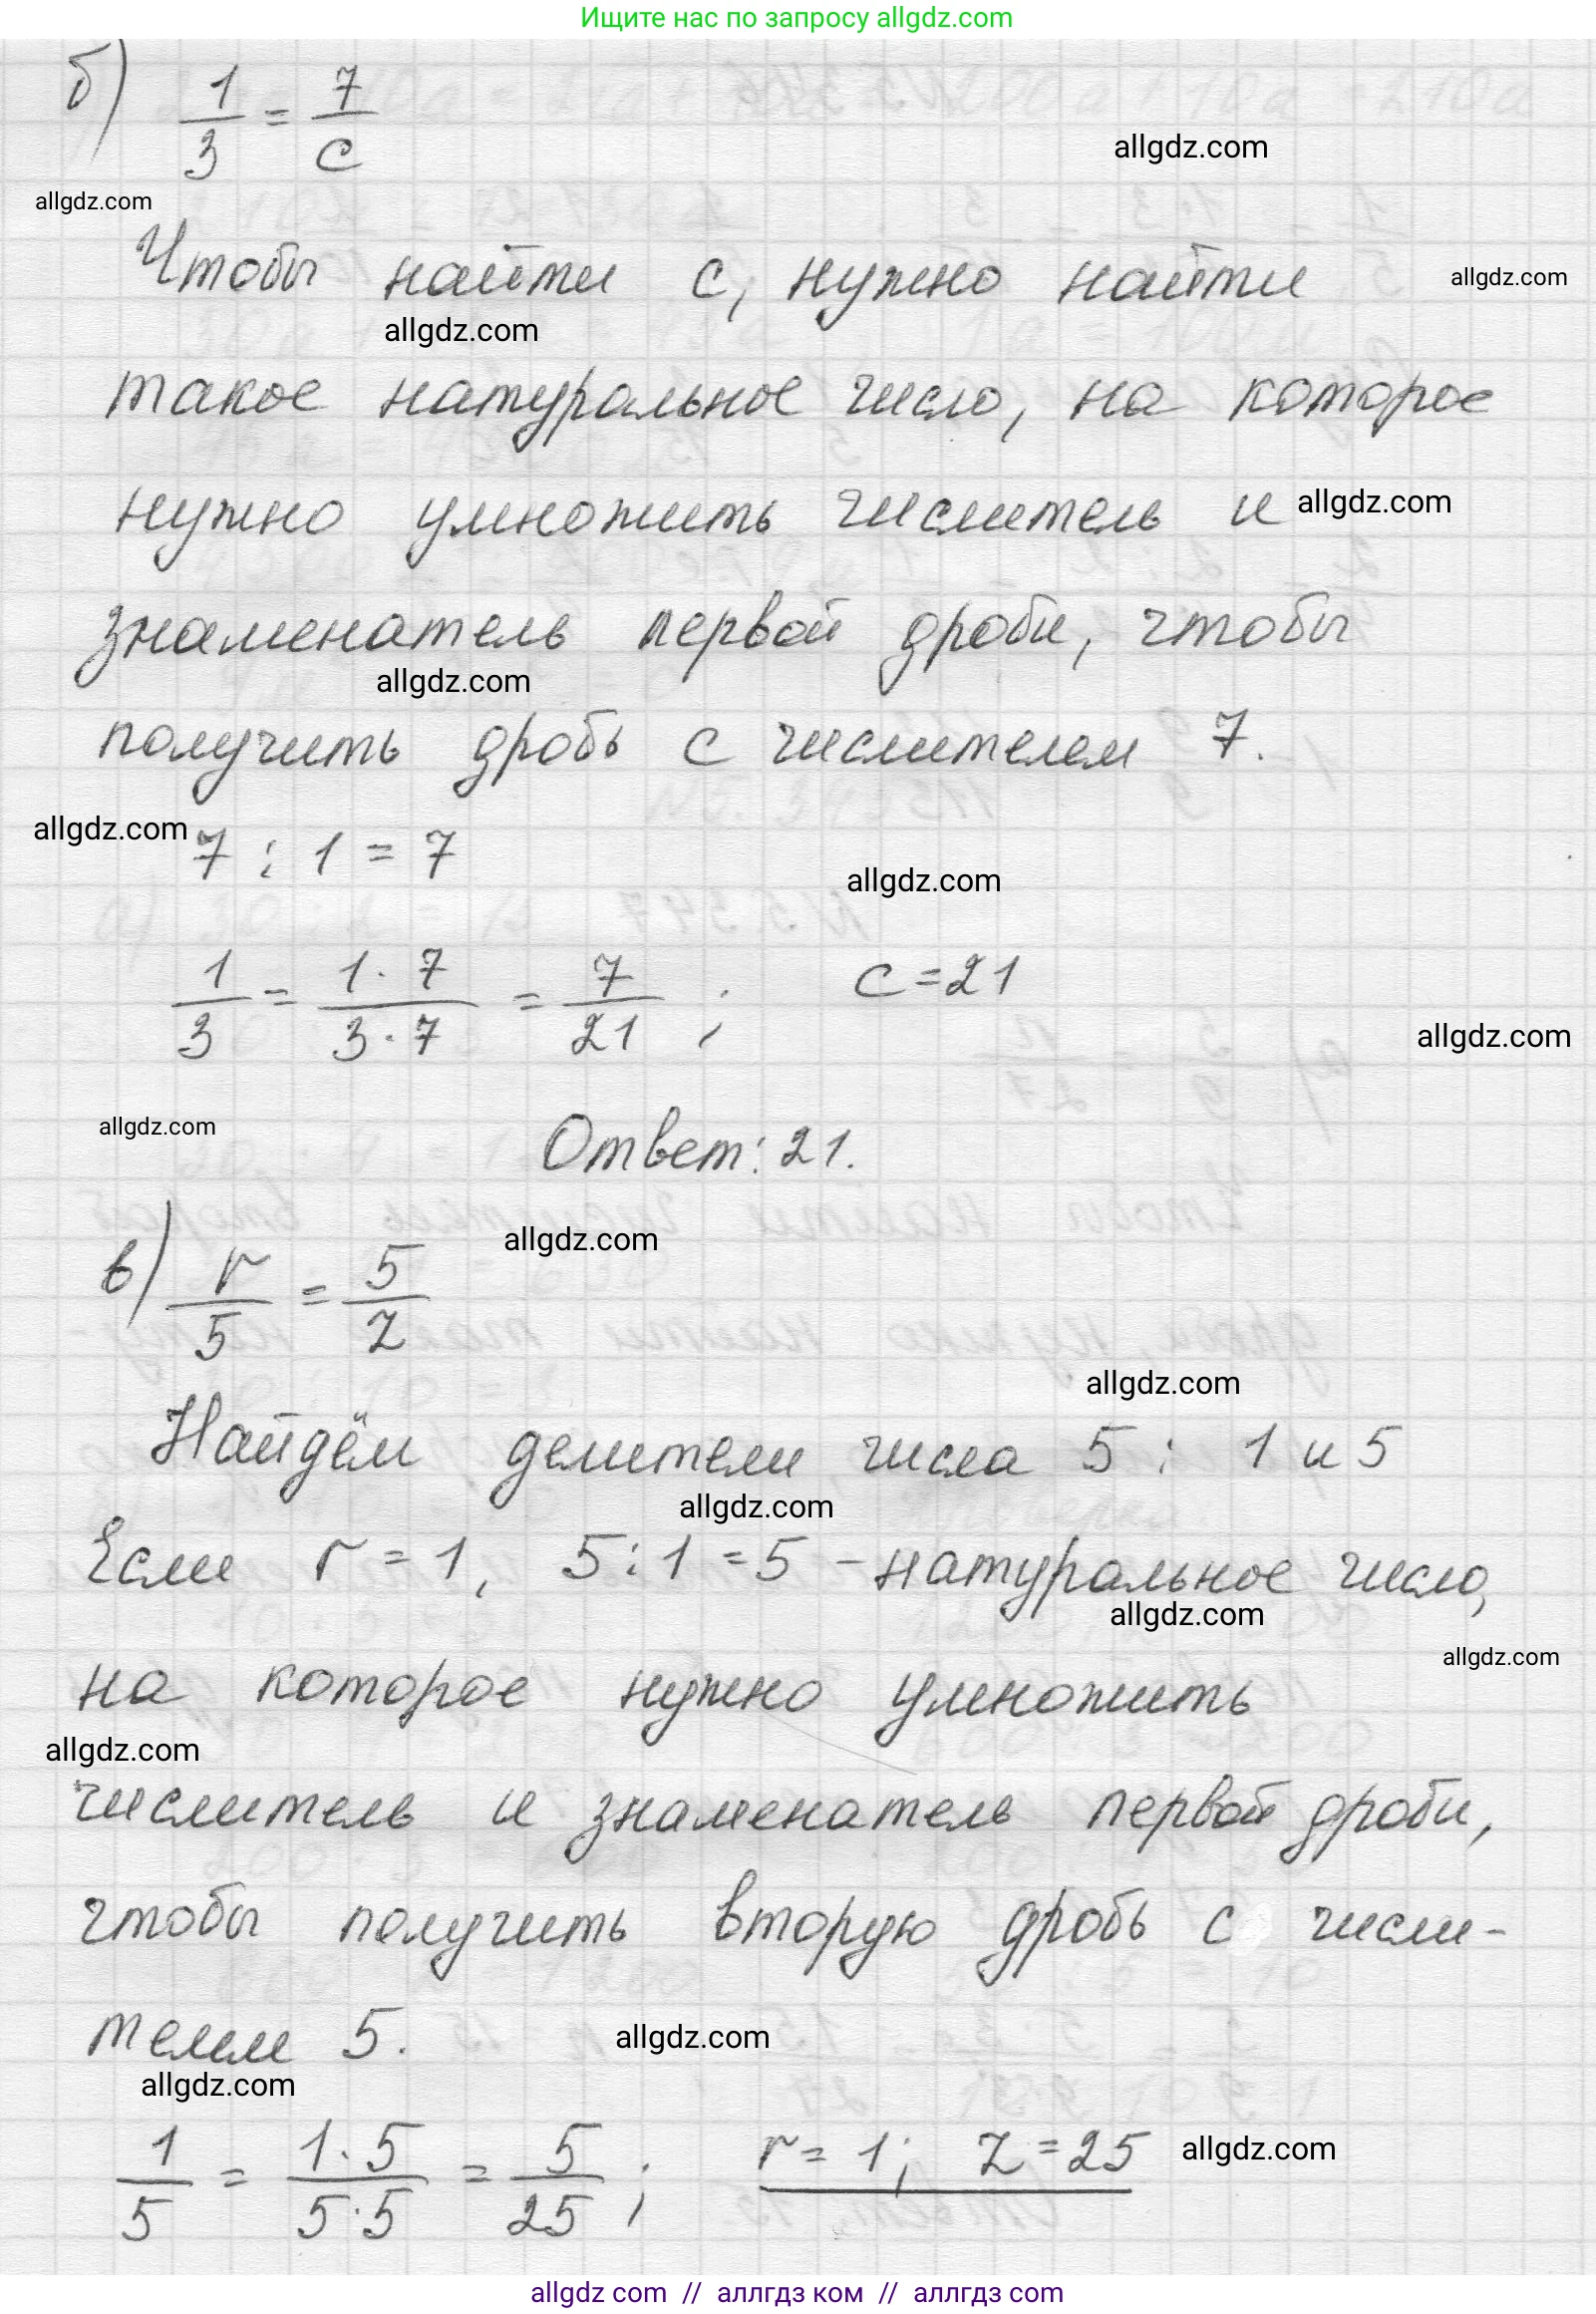 Ищите нас по запросу allgdz.com
б) 1/3 = 7/c
allgdz.com
allgdz.com
Чтобы найти c, нужно найти allgdz.com
allgdz.com
такое натуральное число, на которое
нужно умножить числитель и allgdz.com
знаменатель первой дроби, чтобы
allgdz.com
получить дробь с числителем 7.
allgdz.com 7 : 1 = 7
allgdz.com
1/3 = 1·7/3·7 = 7/21 ; c = 21
allgdz.com
allgdz.com
Ответ: 21.
allgdz.com
в) r/5 = 5/z
allgdz.com
Найдём делители числа 5 : 1 и 5
allgdz.com
Если r = 1, 5 : 1 = 5 - натуральное число,
allgdz.com
allgdz.com
на которое нужно умножить
allgdz.com
числитель и знаменатель первой дроби,
чтобы получить вторую дробь с числи-
телем 5. allgdz.com
allgdz.com
1/5 = 1·5/5·5 = 5/25 ; r = 1; z = 25 allgdz.com
allgdz.com // аллгдз ком // аллгдз.com